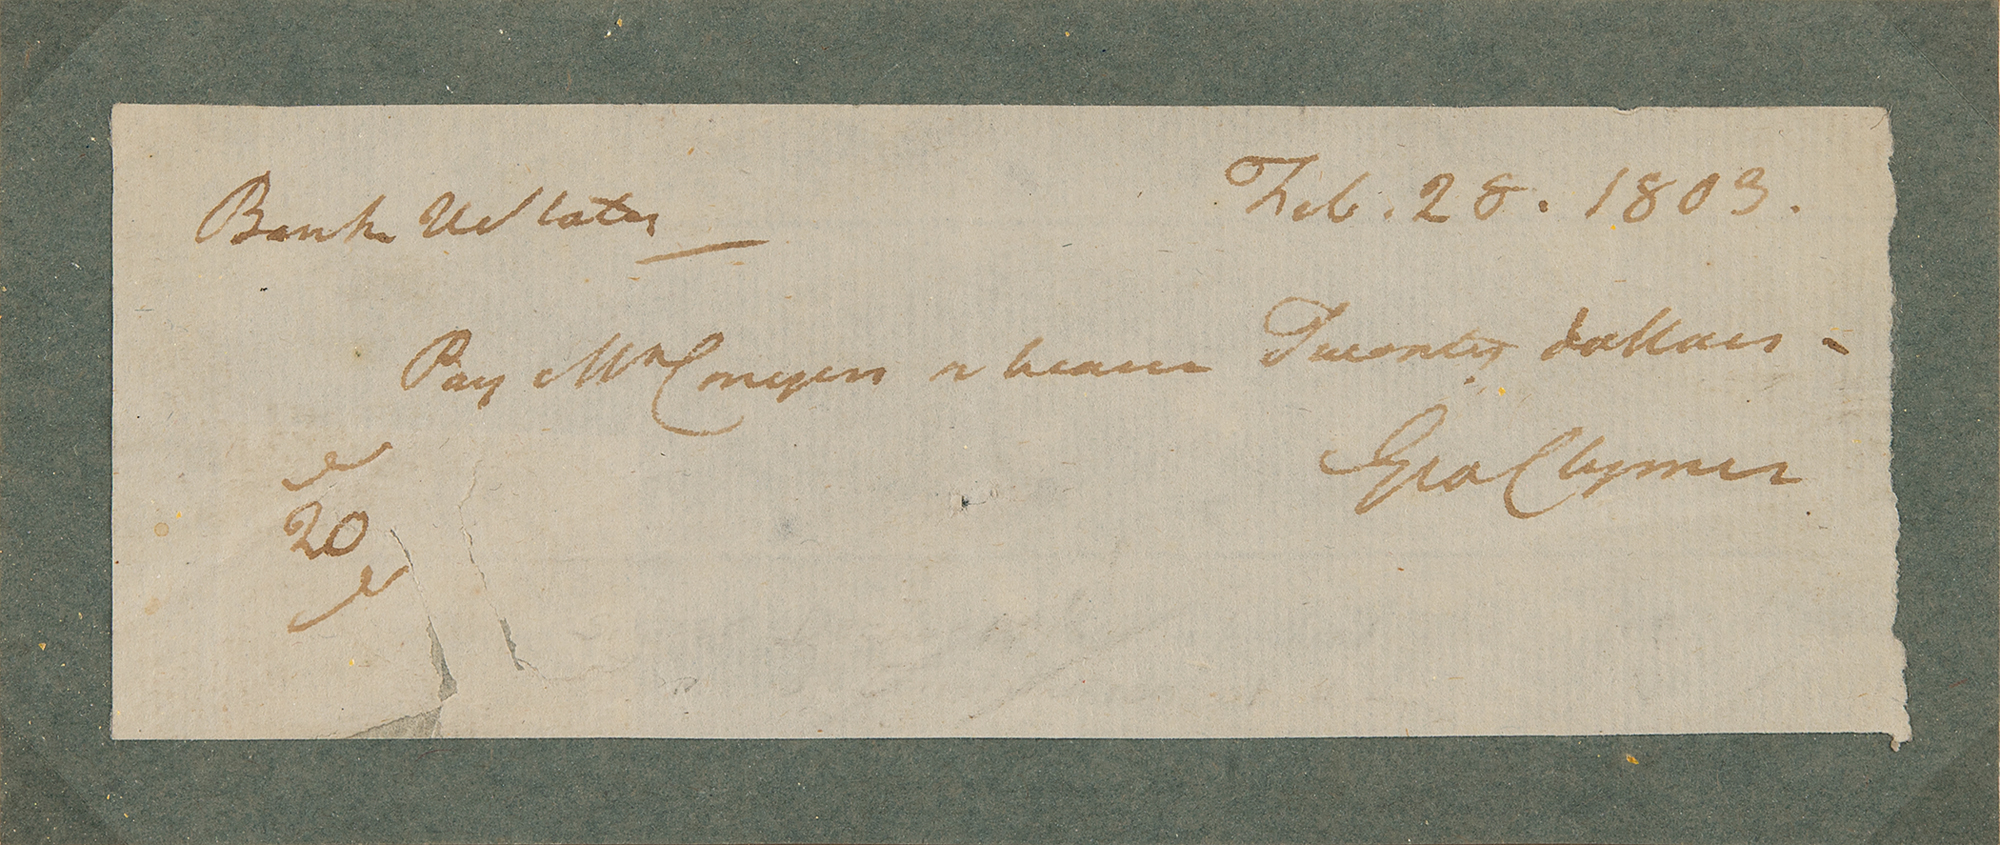 Bank U States
Feb. 28. 1803.
Pay Mr Conyers or bearer Twenty dollars -
Geo Clymer
20